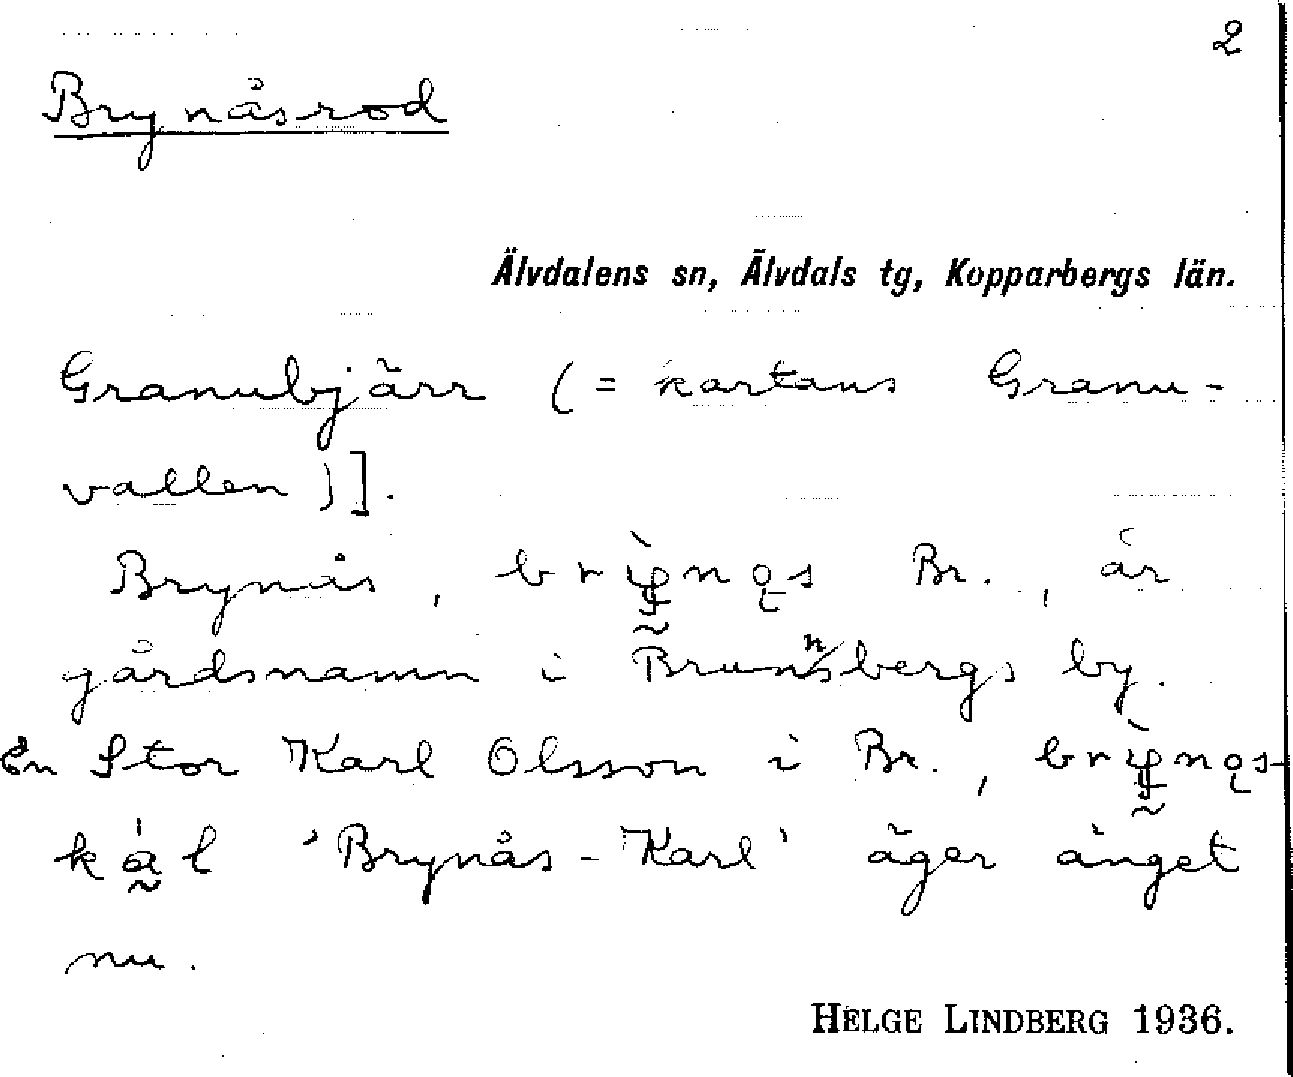 2
Brynåsrod
Älvdalens sn, Älvdals tg, Kopparbergs län.
Granubjärr (= kartans Granu-
vallen)].
Brynås, Br., är
gårdsnamn i Brunnsbergs by.
En Stor Karl Olsson i Br.,
'Brynås-Karl' äger änget
nu.
HELGE LINDBERG 1936.